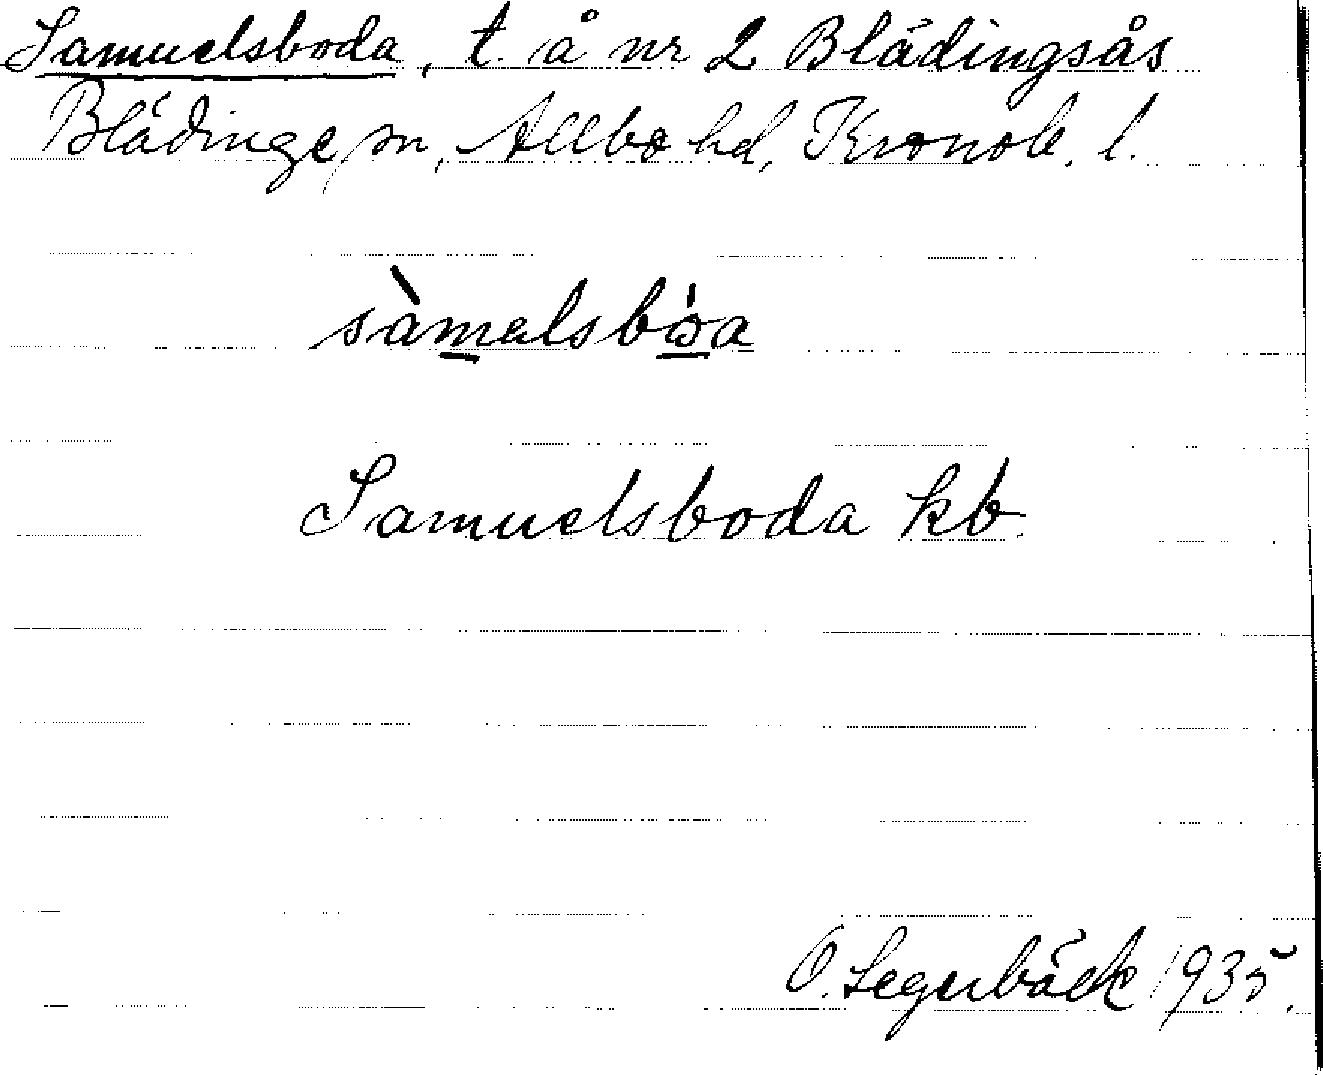 Samuelsboda, t. å nr 2 Blädingsås
Blädinge sn, Allbo hd, Kronob. l.
sàmalsbòa
Samuelsboda kb.
O. Segerbäck 1935.